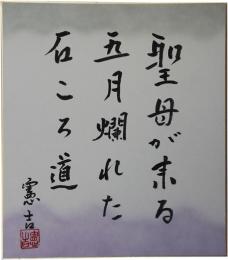 聖母が来る
五月爛れた
石ころ道
憲吉